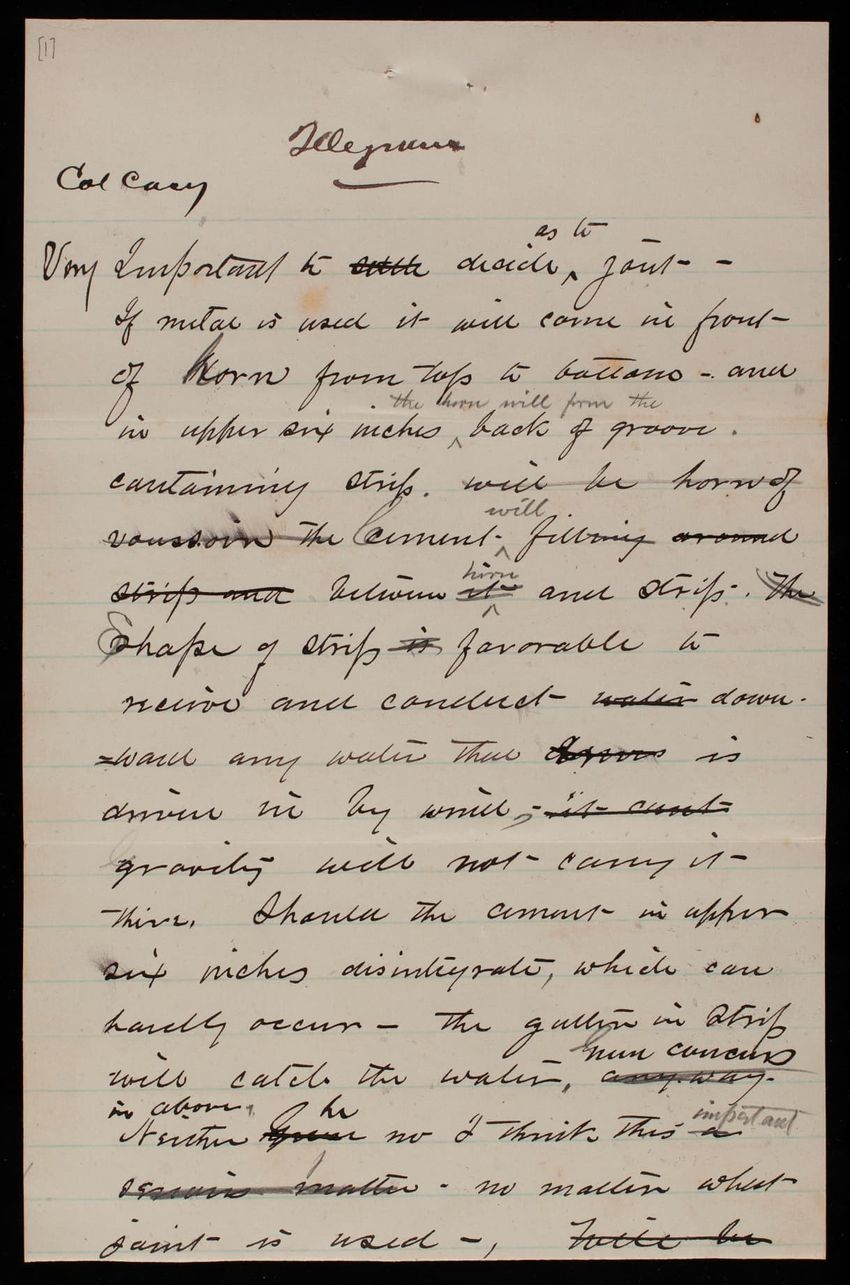 [1]
Telegram
Col Casey
as to
Very Important to decide joint -
If metal is used it will come in front
of horn from top to bottom - and
the horn will form the
in upper six inches back of groove.
containing strip. will be horn of
will
voussoir the Cement filling around
horn
strip and between it and strip. The
Shape of strip is favorable to
receive and conduct water down-
=ward any water that is
driven in by wind, - it cant
gravity will not carry it
there. Should the cement in upper
six inches disintegrate, which can
hardly occur - the gutter in strip
Green concurs
will catch the water, any way.
in above. he
Neither Green no I think this a important
serious matter - no matter what
joint is used -, Will be